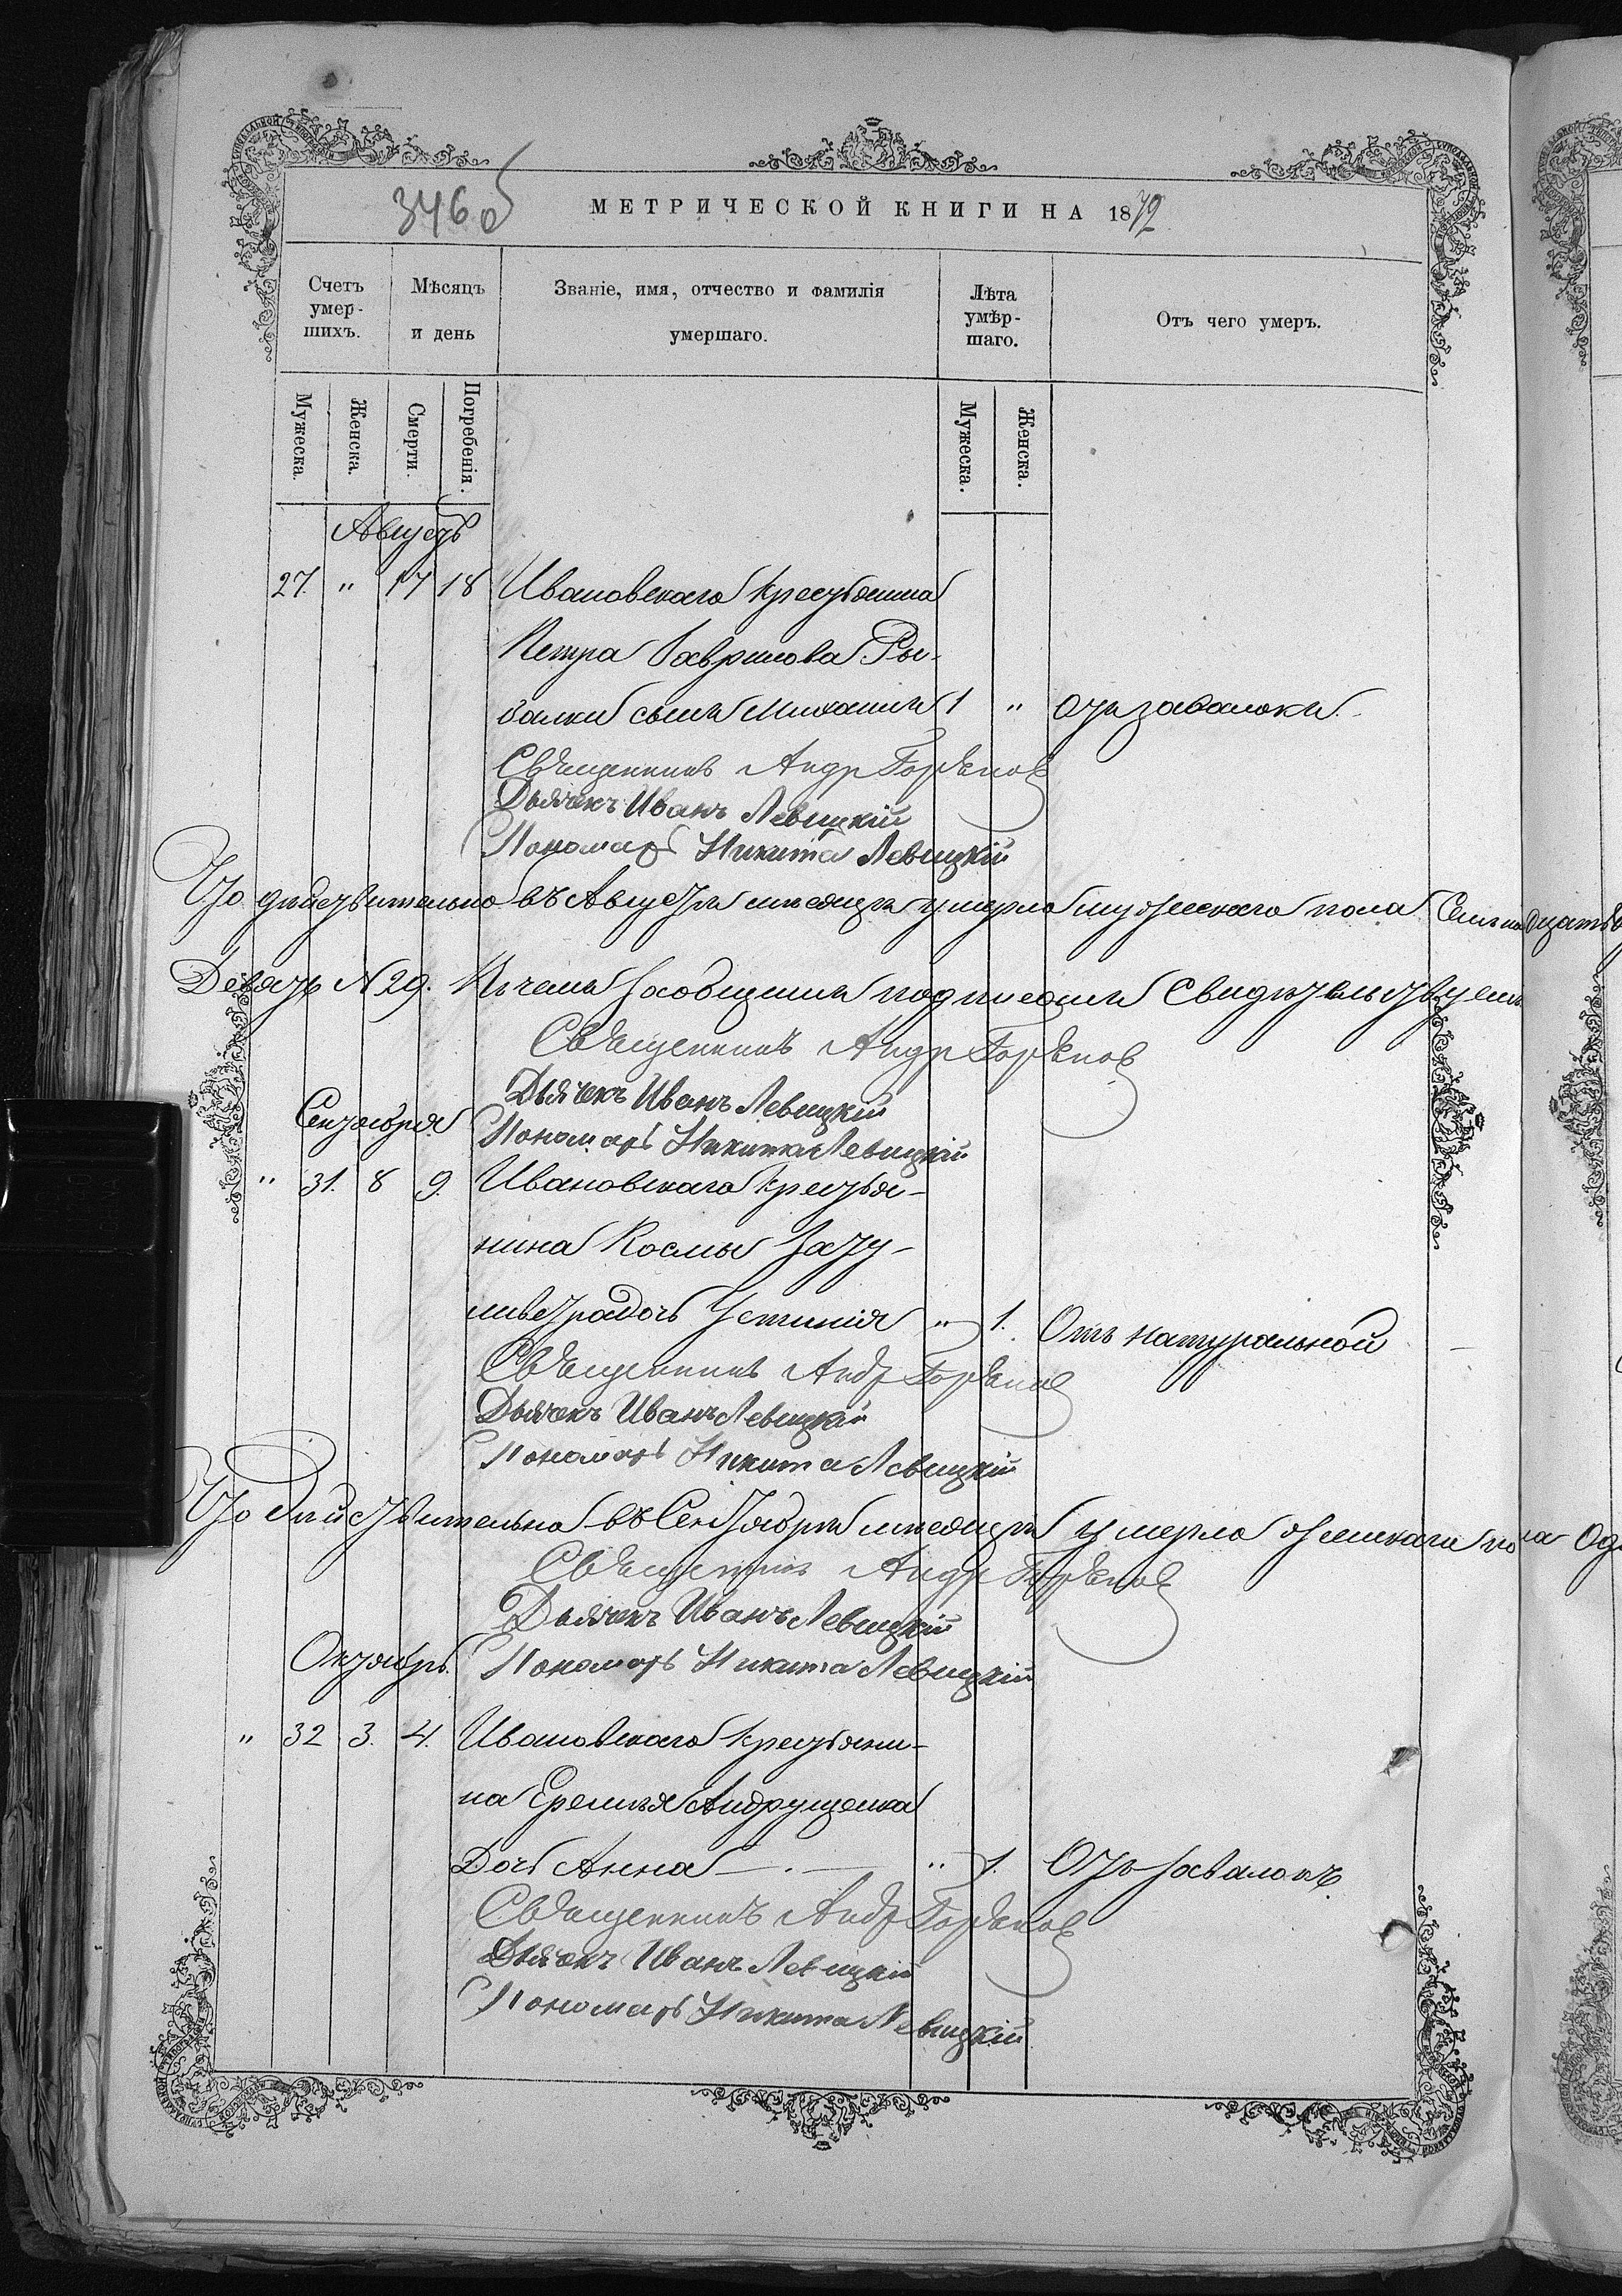 346 об
МЕТРИЧЕСКОЙ КНИГИ НА 1872
Счетъ умер-шихъ. Мѣсяцъ и день Званіе, имя, отчество и фамилія умершаго. Лѣта умѣр-шаго. Отъ чего умеръ.
Мужеска. Женска. Смерти. Погребенія. Мужеска. Женска.
Августъ
27. " 17 18 Ивановскаго крестьянина
Петра Гаврилова Ры-
балки сынъ Михаилъ 1 " отъ завалокъ.
Священникъ Андр
Дьячекъ Иванъ Левицкій
Пономарь Никита Левицкій
Что дѣйствительно въ Августѣ мѣсяцѣ умерло мужескаго пола
Девять №29. Въ чемъ подписомъ Свидѣтельствуемъ
Священникъ Андр
Дьячекъ Иванъ Левицкій
Сентября Пономарь Никита Левицкій
" 31. 8 9. Ивановскаго крестья-
нина Космы Зату-
ливетра дочь Устинія " 1. Отъ натуральной
Священникъ Андр
Дьячекъ Иванъ Левицкій
Пономарь Никита Левицкій
Что дѣйствительно въ Сентябрѣ мѣсяцѣ умерло женскаго пола
Священникъ Андр
Дьячекъ Иванъ Левицкій
Октябрь. Пономарь Никита Левицкій
" 32 3. 4. Ивановскаго крестьяни-
на Еремія Андрущенка
Дочь Анна " 1. Отъ завалокъ.
Священникъ Андр
Дьячекъ Иванъ Левицкій
Пономарь Никита Левицкій